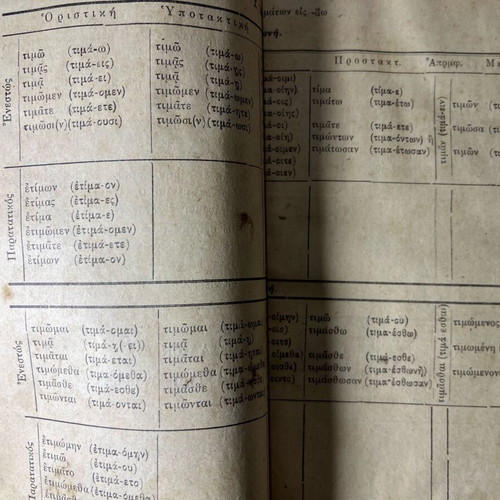 Ὁριστική Ὑποτακτική
Ἐνεστώς
τιμῶ (τιμά-ω) τιμῶ (τιμά-ω)
τιμᾷς (τιμά-εις) τιμᾷς (τιμά-ῃς)
τιμᾷ (τιμά-ει) τιμᾷ (τιμά-ῃ)
τιμῶμεν (τιμά-ομεν) τιμῶμεν (τιμά-ωμεν)
τιμᾶτε (τιμά-ετε) τιμᾶτε (τιμά-ητε)
τιμῶσι(ν) (τιμά-ουσι) τιμῶσι(ν) (τιμά-ωσι)
Παρατατικός
ἐτίμων (ἐτίμα-ον)
ἐτίμας (ἐτίμα-ες)
ἐτίμα (ἐτίμα-ε)
ἐτιμῶμεν (ἐτιμά-ομεν)
ἐτιμᾶτε (ἐτιμά-ετε)
ἐτίμων (ἐτίμα-ον)
Ἐνεστώς
τιμῶμαι (τιμά-ομαι) τιμῶμαι (τιμά-ωμαι)
τιμᾷ (τιμά-ῃ(-ει) τιμᾷ (τιμά-ῃ)
τιμᾶται (τιμά-εται) τιμᾶται (τιμά-ηται)
τιμώμεθα (τιμα-όμεθα) τιμώμεθα
τιμᾶσθε (τιμά-εσθε) τιμᾶσθε
τιμῶνται (τιμά-ονται) τιμῶνται (τιμά-ωνται)
Παρατατικός
ἐτιμώμην (ἐτιμα-όμην)
ἐτιμῶ (ἐτιμά-ου)
ἐτιμᾶτο (ἐτιμά-ετο)
ἐτιμώμεθα
ἐτιμᾶσθε
εἰς -άω
Προστακτ. Ἀπρμφ.
τίμα (τίμα-ε)
τιμάτω (τιμα-έτω)
τιμᾶτε (τιμά-ετε)
τιμώντων (τιμα-όντων) ἢ
τιμάτωσαν (τιμα-έτωσαν)
τιμᾶν (τιμά-ειν)
τιμῶν
τιμῶσα
τιμῶν
τιμῶ (τιμά-ου)
τιμάσθω (τιμα-έσθω)
τιμᾶσθε (τιμά-εσθε)
τιμάσθων (τιμα-έσθων) ἢ
τιμάσθωσαν (τιμα-έσθωσαν)
τιμᾶσθαι
τιμώμενος
τιμωμένη
τιμώμενον